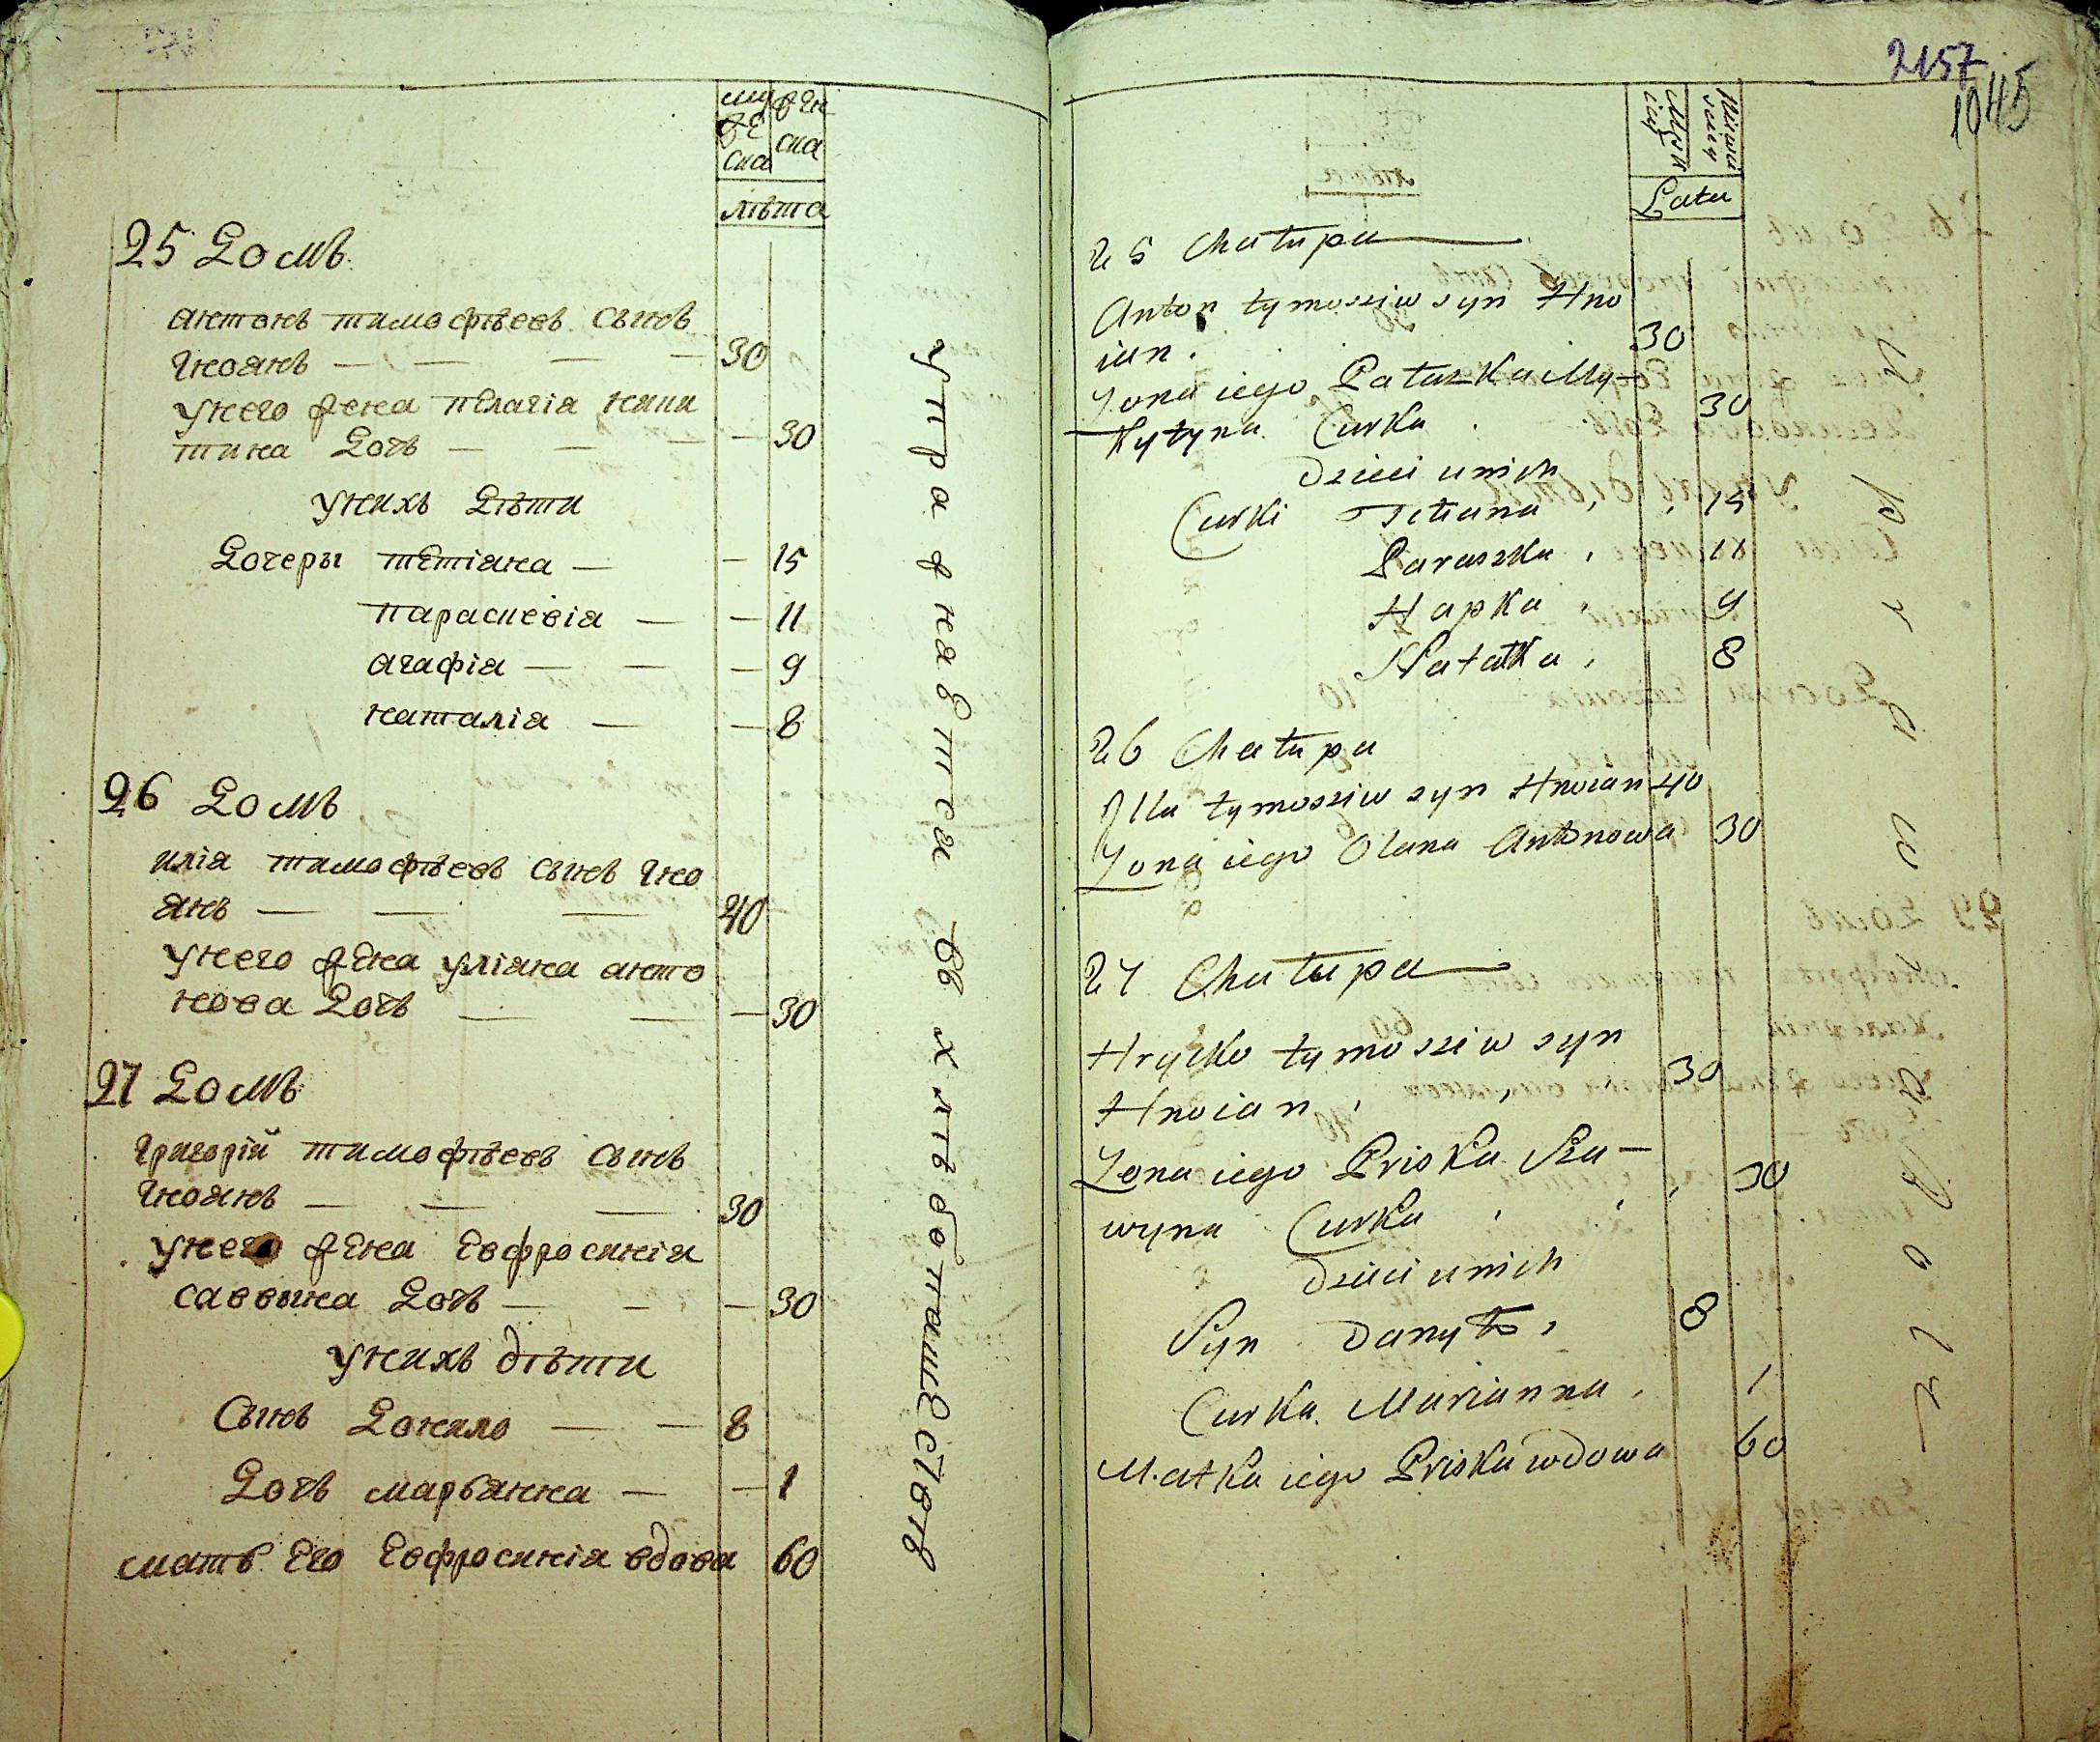 муже
ска
жен
ска
лѣта
25 Домъ
антонъ тимофѣевъ сынъ
гноянъ — — — 30
унего жена пелагія ники
тина дочь — — — 30
унихъ дѣти
дочеры тетіана — — 15
параскевія — — 11
агафія — — — 9
наталія — — 8
26 Домъ
илія тимофѣевъ сынъ гно
янъ — — — 40
унего жена уліана анто
нова дочь — — — 30
27 Домъ
григорій тимофѣевъ сынъ
гноянъ — — — 30
унего жена евфросинія
саввина дочь — — — 30
унихъ дѣти
Сынъ Данило — — 8
дочь марьянна — — 1
мать его евфросинія вдова 60
упражняется въ хлѣбопашествѣ
2157
1045
Męsk
iey
Niewie
sciey
Lata
25 Chałupa
Anton tymosziw syn Hno
ian . 30
Zona iego Pałaszka My-
kytyna Curka . 30
Dzieci unich
Curki Tetiana , , 15
Paraszka , 11
Hapka , 9
Natałka , 8
26 Chałupa
Illa tymosziw syn Hnoian 40
Zona iego Olana Antonowa 30
27 Chałupa
Hryćko tymosziw syn
Hnoian , , , 30
Zona iego Priska Sza-
wyna Curka , , , 30
Dzieci unich
Syn Danyło , 8
Curka Marianna , 1
Matka iego Priska wdowa 60